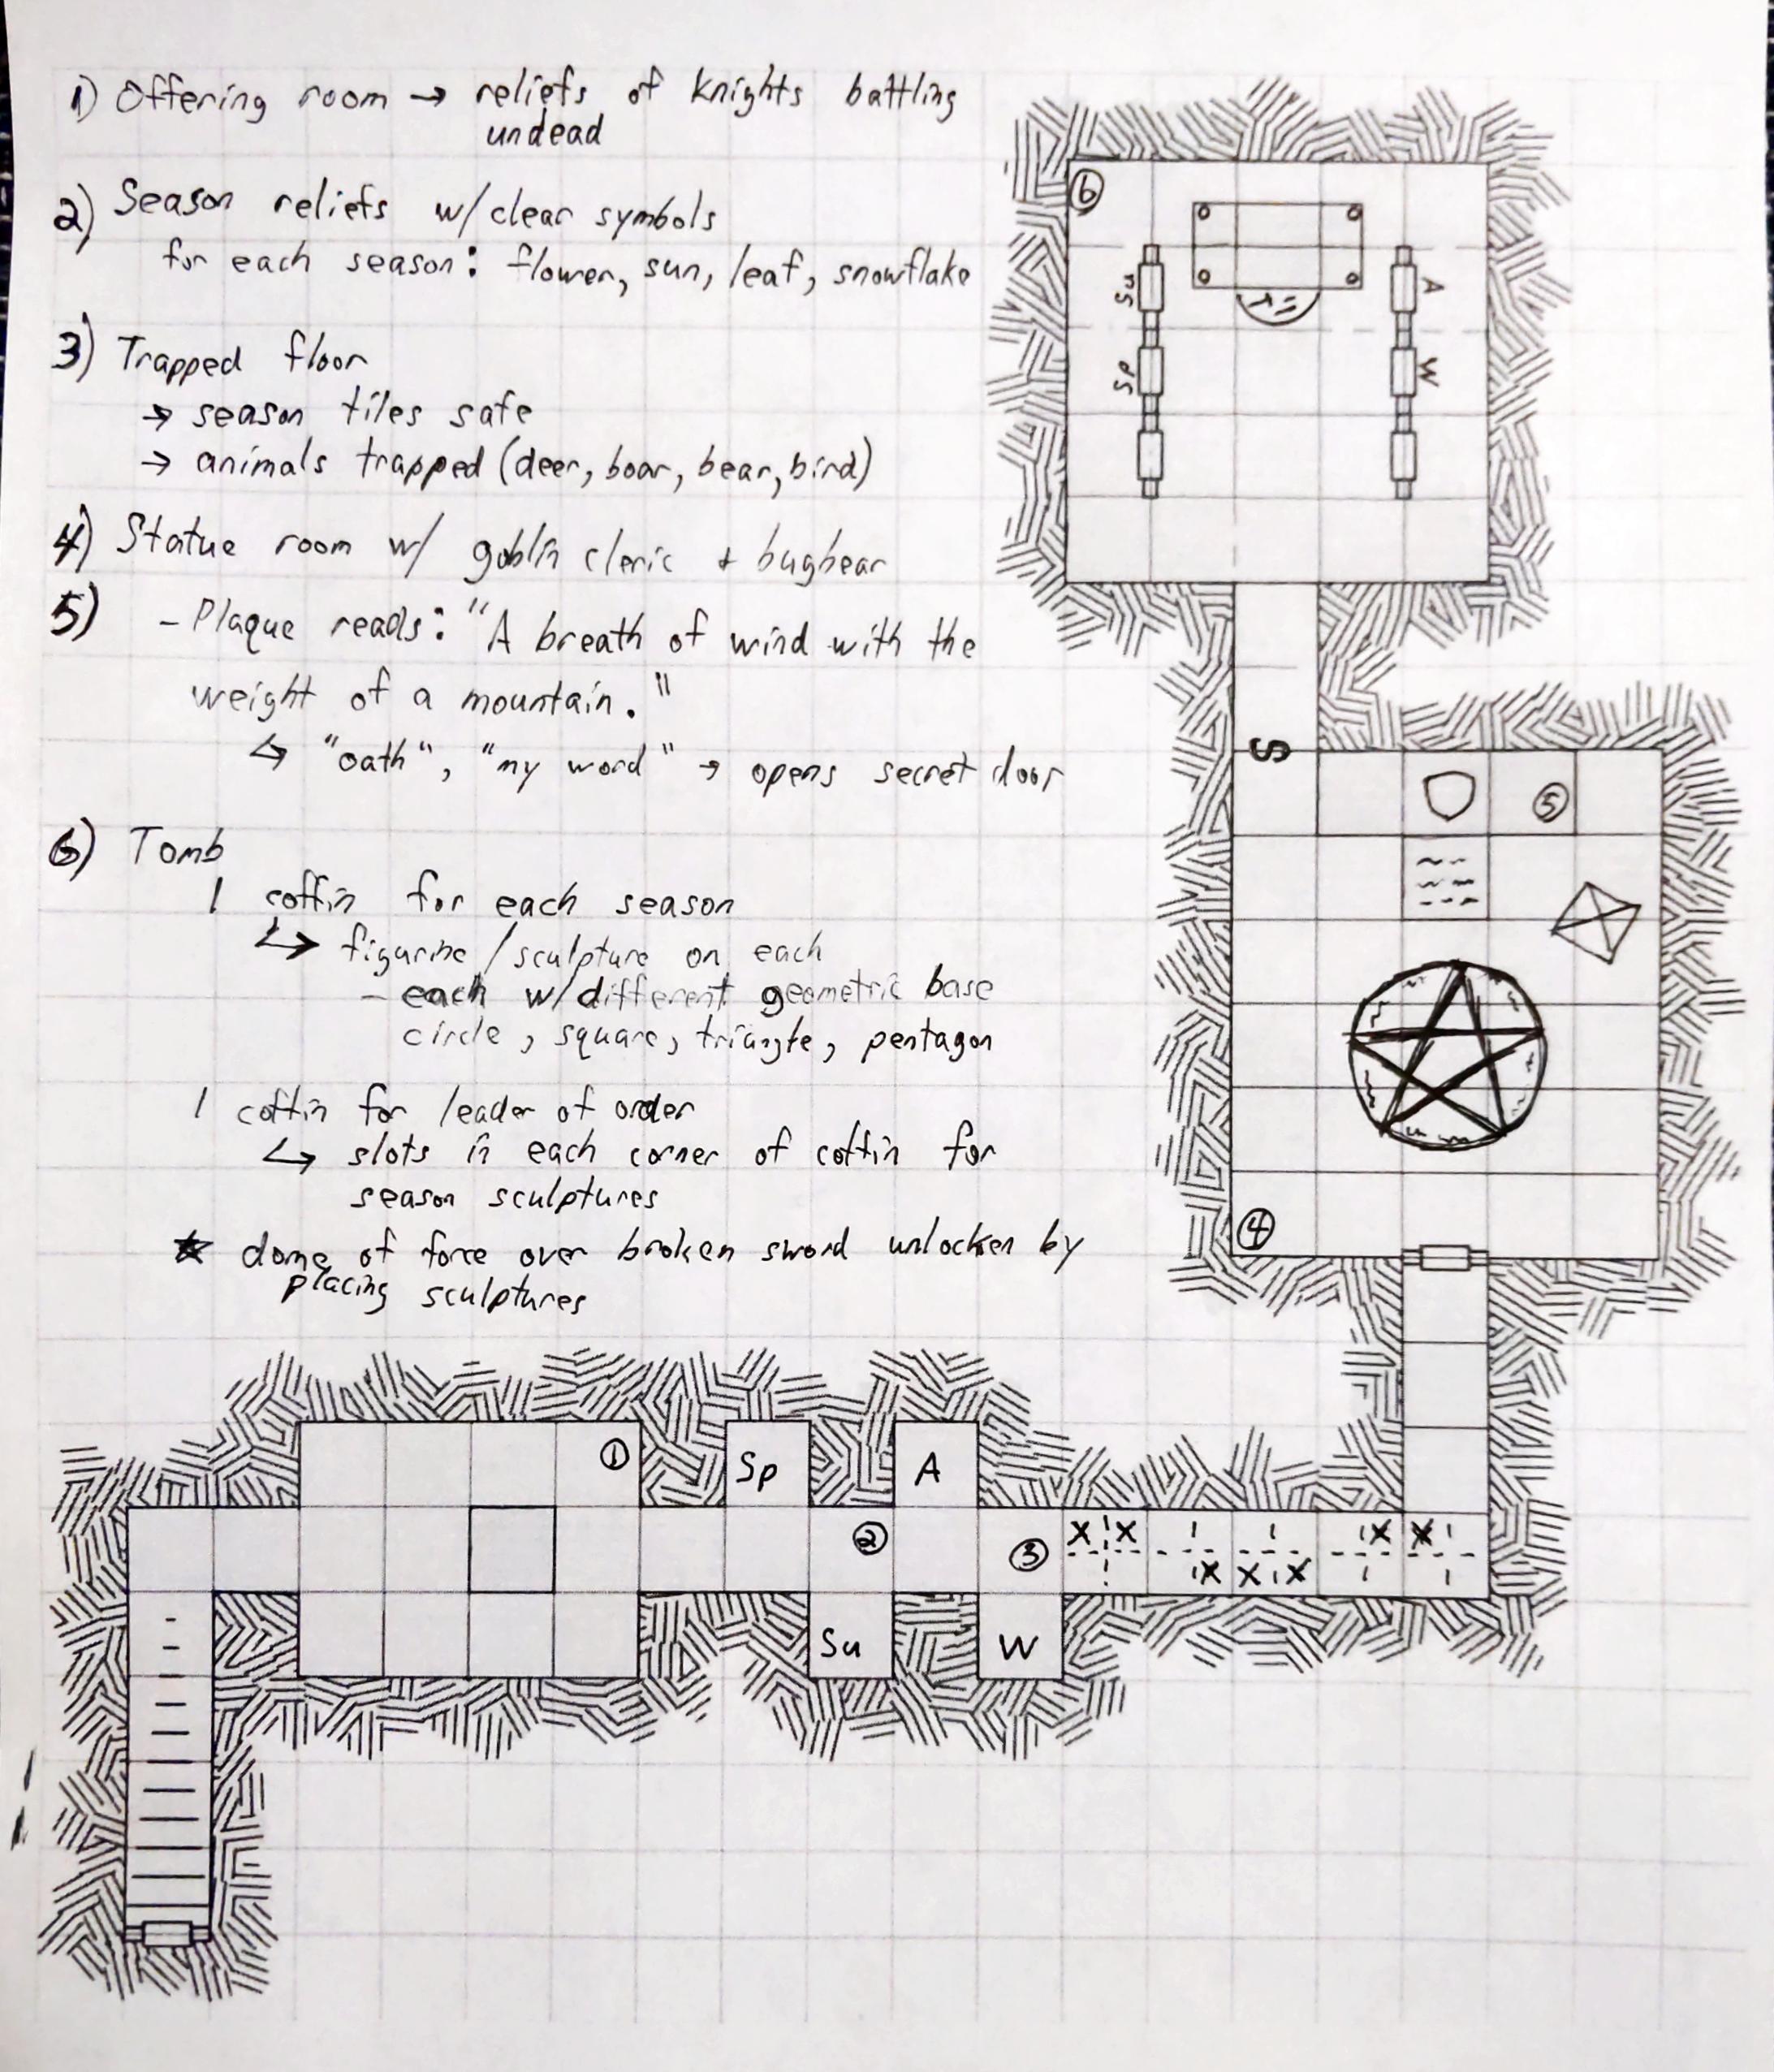 1) Offering room → reliefs of knights battling
undead
2) Season reliefs w/ clear symbols
for each season: flower, sun, leaf, snowflake
3) Trapped floor
→ season tiles safe
→ animals trapped (deer, boar, bear, bird)
4) Statue room w/ goblin cleric + bugbear
5) - Plaque reads: "A breath of wind with the
weight of a mountain."
↳ "oath", "my word" → opens secret door
6) Tomb
1 coffin for each season
↳ figurine / sculpture on each
- each w/ different geometric base
circle, square, triangle, pentagon
1 coffin for leader of order
↳ slots in each corner of coffin for
season sculptures
★ dome of force over broken sword unlocken by
placing sculptures
6
Su
A
Sp
W
S
5
4
1
Sp
A
2
3
X X
X
X
X
X X
Su
W